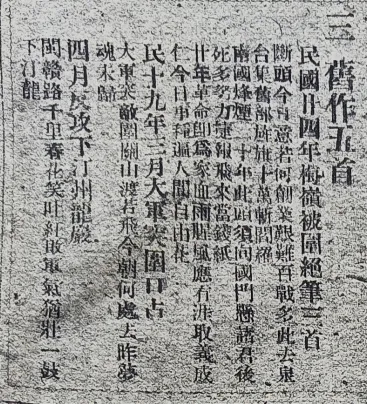 三 舊作五首
民國廿四年梅嶺被圍絕筆三首
斷頭今日意若何創業艱難百戰多此去泉
台集舊部旌旗十萬斬閻羅
南國烽煙十年此頭須向國門懸諸君後
死多努力捷報飛來當錢紙
廿年革命即為家血雨腥風應有涯取義成
仁今日事種遍人間自由花
民十九年三月大軍突圍口占
大軍突敵圍關山渡若飛今朝何處去昨夢
魂未歸
四月反攻下汀州龍巖
閩贛路千里春花笑吐紅敗軍氣猶壯一鼓
下汀龍